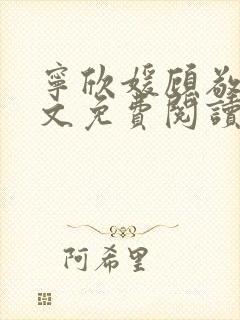 寧欣媛顧敬
文免費閱讀
阿希里